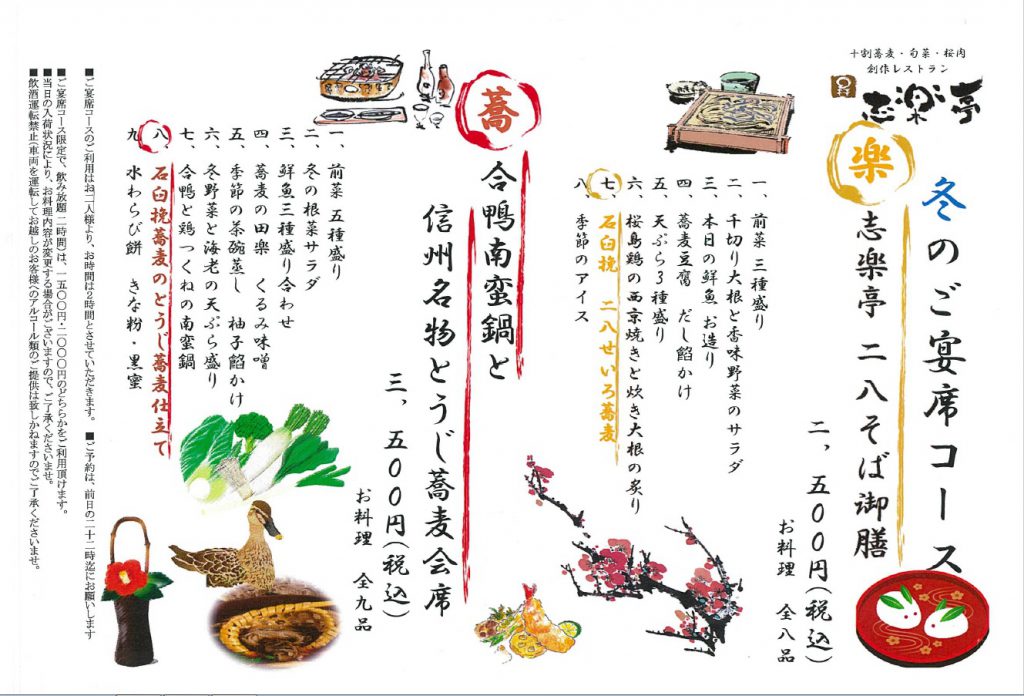 十割蕎麦・旬菜・桜肉
創作レストラン
志楽亭
冬のご宴席コース
楽
志楽亭 二八そば御膳
二、五００円(税込)
お料理 全八品
一、前菜 三種盛り
二、千切り大根と香味野菜のサラダ
三、本日の鮮魚 お造り
四、蕎麦豆腐 だし餡かけ
五、天ぷら３種盛り
六、桜島鶏の西京焼きと炊き大根の炙り
七、石臼挽 二八せいろ蕎麦
八、季節のアイス
蕎
合鴨南蛮鍋と
信州名物とうじ蕎麦会席
三、五００円(税込)
お料理 全九品
一、前菜 五種盛り
二、冬の根菜サラダ
三、鮮魚三種盛り合わせ
四、蕎麦の田楽 くるみ味噌
五、季節の茶碗蒸し 柚子餡かけ
六、冬野菜と海老の天ぷら盛り
七、合鴨と鶏つくねの南蛮鍋
八、石臼挽蕎麦のとうじ蕎麦仕立て
九、水わらび餅 きな粉・黒蜜
■ご宴席コースのご利用はお二人様より、お時間は２時間とさせていただきます。 ■ご予約は、前日の二十二時迄にお願いします
■ご宴席コース限定で、飲み放題(二時間)は、一五〇〇円・二〇〇〇円のどちらかをご利用頂けます。
■当日の入荷状況により、お料理内容が変更する場合がございますので、ご了承くださいませ。
■飲酒運転禁止(車両を運転してお越しのお客様へのアルコール類のご提供は致しかねますのでご了承くださいませ。